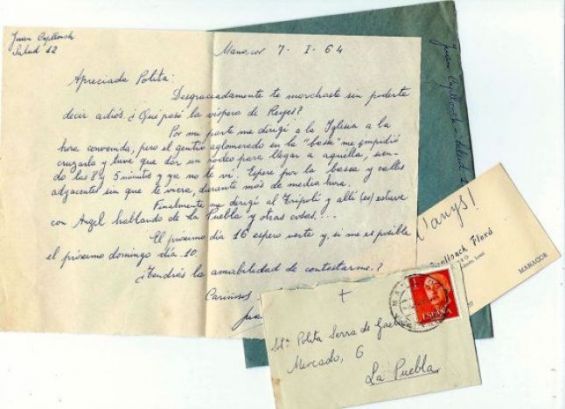 Juan
Salud 12
Manacor 7-I-64
Apreciada Polita:
Desgraciadamente te marchaste sin poderte
decir adiós. ¿Qué pasó la víspera de Reyes?
Por mi parte me dirigí a la Iglesia a la
hora convenida, pero el gentío aglomerado en la "bassa" me impidió
cruzarla y tuve que dar un rodeo para llegar a aquella, sien-
do las 8 y 5 minutos y ya no te vi. Esperé por la bassa y calles
adyacentes sin que te viera, durante más de media hora.
Finalmente me dirigí al Trípoli y allí (es) estuve
con Angel hablando de La Puebla y otras cosas!...
El próximo día 16 espero verte y, si no es posible
el próximo domingo día 10.
¿Tendrás la amabilidad de contestarme?
Cariñosos
Juan
d'anys!
MANACOR
ESPAÑA
Polita Serra de
Mercado, 6
La Puebla